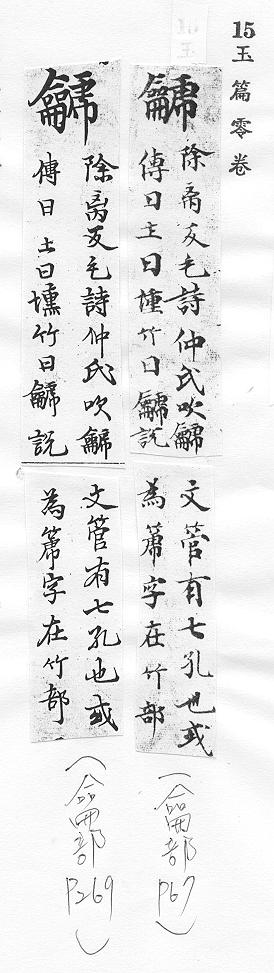 15玉篇零卷
䶵
除离反毛詩仲氏吹䶵
傳曰土曰壎竹曰䶵說
文管有七孔也或
為篪字在竹部
（龠部P67）
䶵
除离反毛詩仲氏吹䶵
傳曰土曰壎竹曰䶵說
文管有七孔也或
為篪字在竹部
（龠部P269）